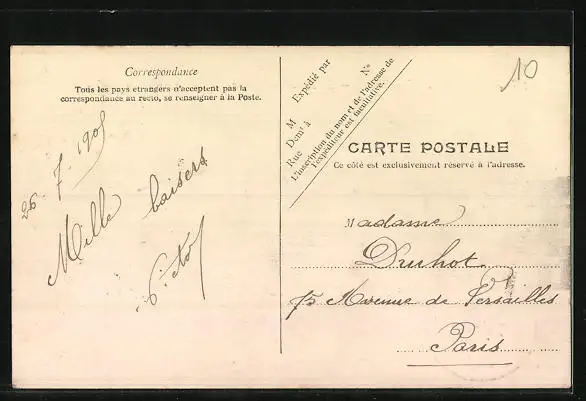 Correspondance
Tous les pays etrangers n'acceptent pas la
correspondance au recto, se renseigner à la Poste.
26 7. 1905
Mille baisers
Victor
Expédié par
M
Demt à
Rue No
L'inscription du nom et de l'adresse de
l'expéditeur est facultative.
10
CARTE POSTALE
Ce côté est exclusivement réservé à l'adresse.
Madame
Druhot
75 Avenue de Versailles
Paris